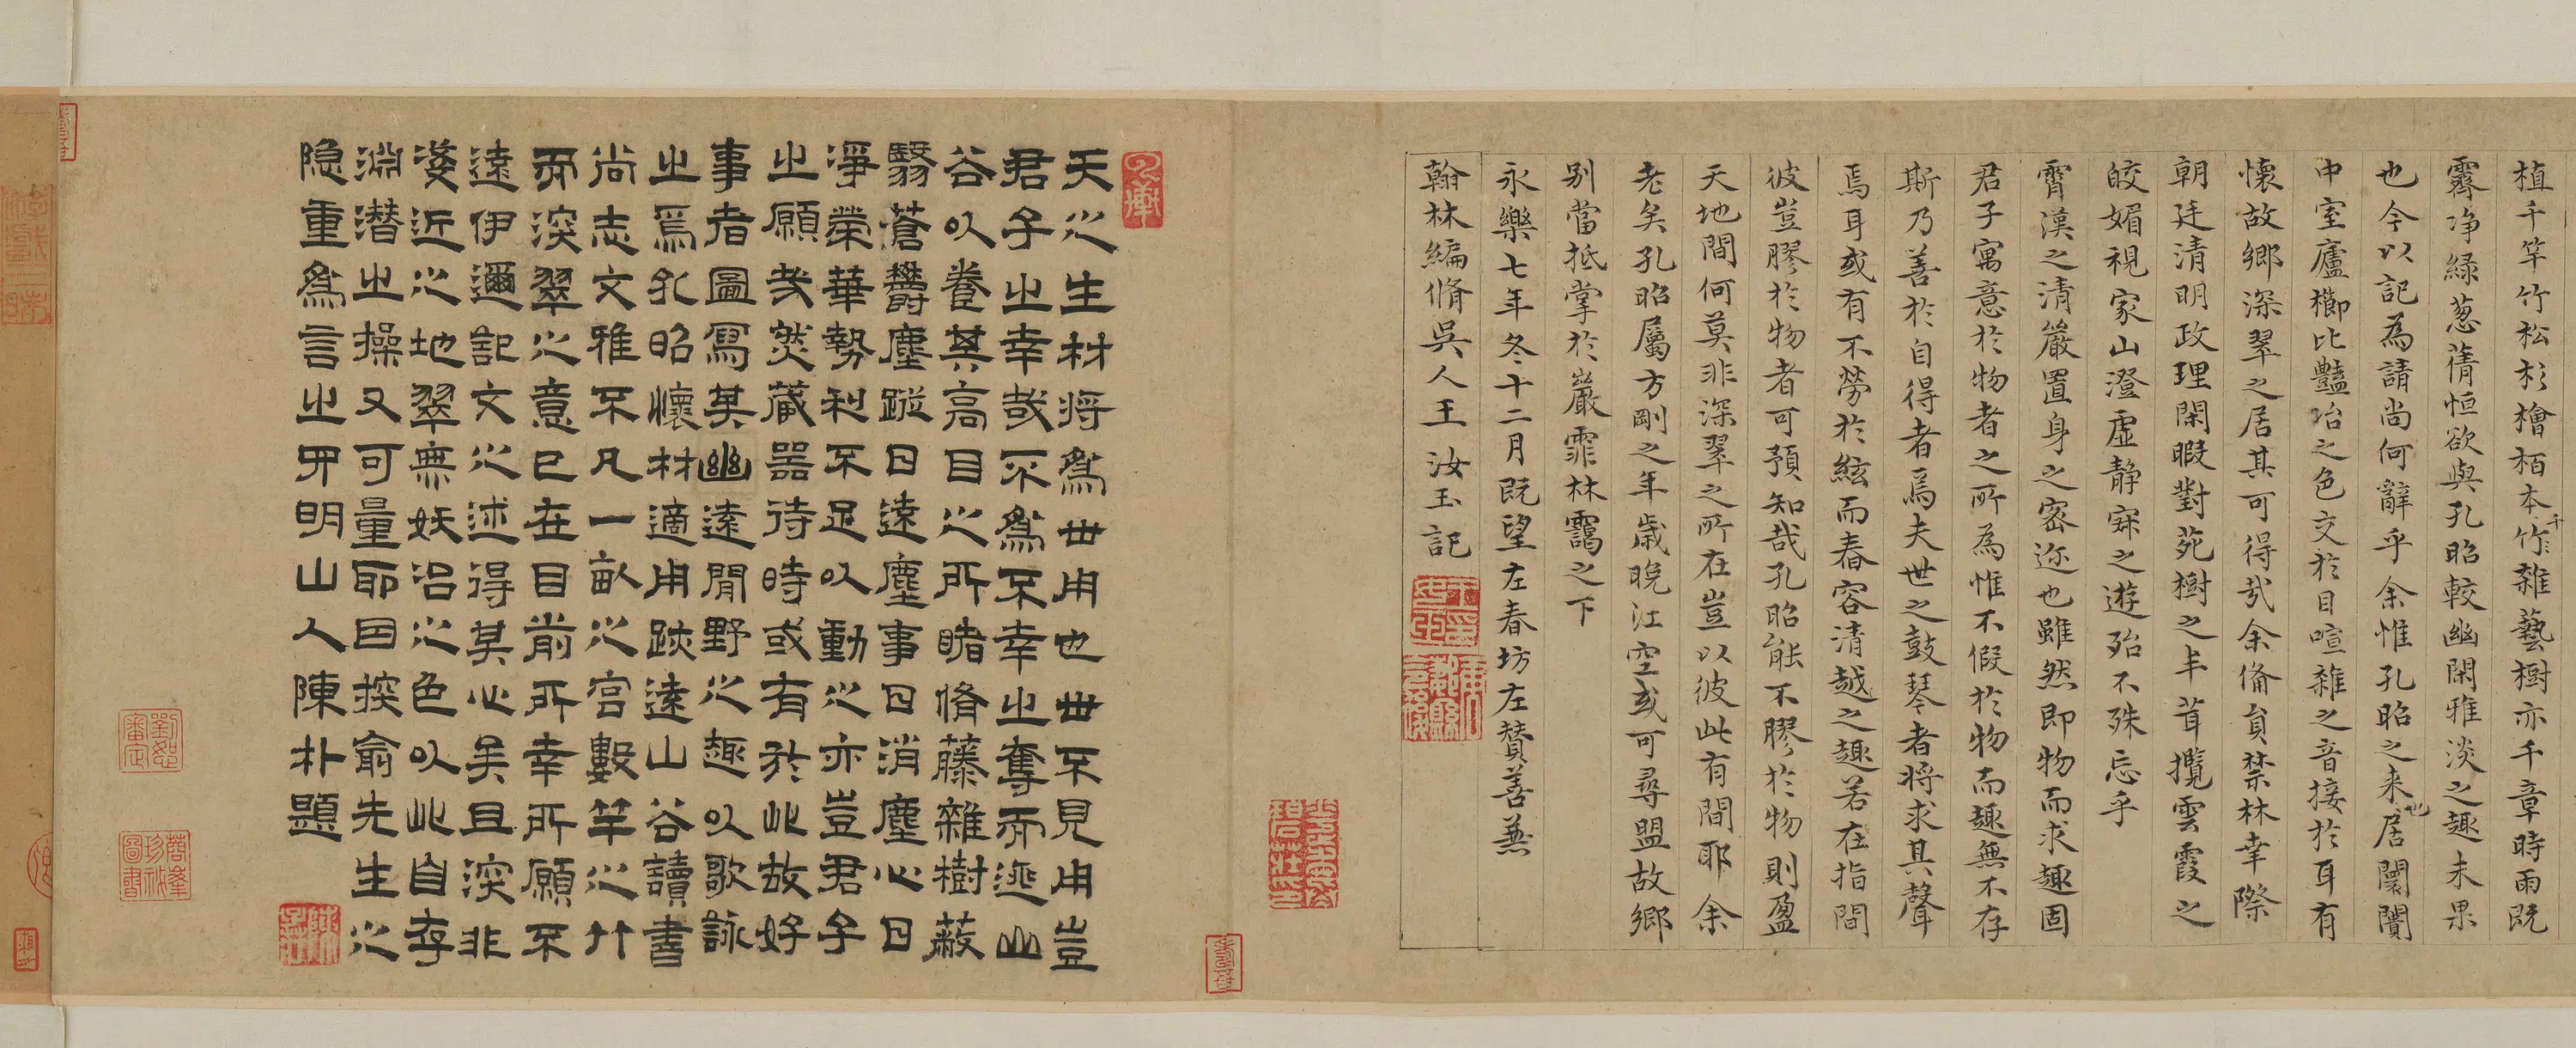 植千竿竹松杉檜栢本竹雜藝樹亦千章時雨既
霽净綠葱蒨恒欲與孔昭較幽閑雅淡之趣未果
也今以記為請尚何辭乎余惟孔昭之来也居闤闠
中室廬櫛比豔冶之色交於目喧雜之音接於耳有
懷故鄉深翠之居其可得哉余備員禁林幸際
朝廷清明政理閑暇對苑樹之丰茸攬雲霞之
皎媚視家山澄虛靜寐之遊殆不殊忘乎
霄漢之清嚴置身之密迩也雖然即物而求趣固
君子寓意於物者之所為惟不假於物而趣無不存
斯乃善於自得者焉夫世之鼓琴者将求其聲
焉耳或有不勞於絃而舂容清越之趣若在指間
彼豈膠於物者可預知哉孔昭能不膠於物則盈
天地間何莫非深翠之所在豈以彼此有間耶余
老矣孔昭屬方剛之年歲晚江空或可尋盟故鄉
别當抵掌於巖霏林靄之下
永樂七年冬十二月既望左春坊左贊善兼
翰林編脩吳人王汝玉記
天之生材将為世用也世不見用豈
君子之幸哉不為不幸之奪而迯山
谷以養其高目之所睹脩藤雜樹蔽
翳蒼欝塵蹤日遠塵事日消塵心日
淨榮華勢利不足以動之亦豈君子
之願哉然藏器待時或有於此故好
事者圖寫其幽遠閒野之趣以歌詠
之焉孔昭懷材適用跡遠山谷讀書
尚志文雅不凡一畝之宫數竿之竹
而深翠之意已在目前所幸所願不
遠伊邇記文之述得其心矣且深非
淺近之地翠無妖冶之色以此自存
淵潛之操又可量耶因挨俞先生之
隐重為言之甲明山人陳朴題